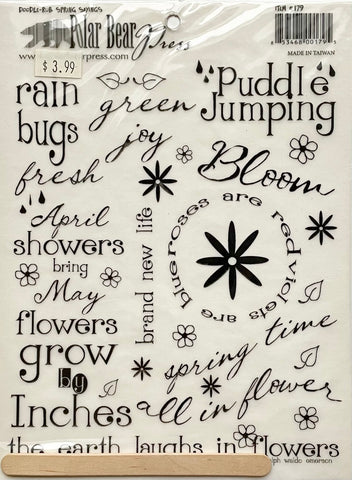 DOODLE-RUB SPRING SAYINGS
ITEM #179
Polar Bear Press
MADE IN TAIWAN
$ 3.99
rain
bugs
green
Puddle
Jumping
joy
fresh
Bloom
April
showers
bring
May
flowers
brand new life
roses are red violets are blue
grow
by
Inches
spring time
all in flower
the earth laughs in flowers
waldo emerson